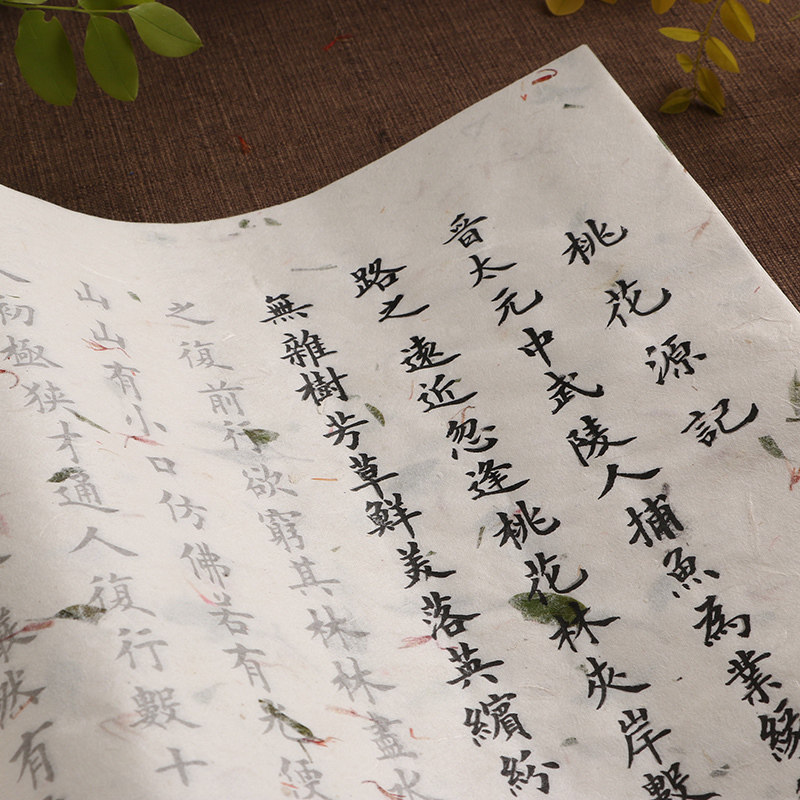 桃花源記
晉太元中武陵人捕魚為業緣
路之遠近忽逢桃花林夾岸數
無雜樹芳草鮮美落英繽紛
之復前行欲窮其林林盡水
山山有小口仿佛若有光便
初極狹才通人復行數十
然有